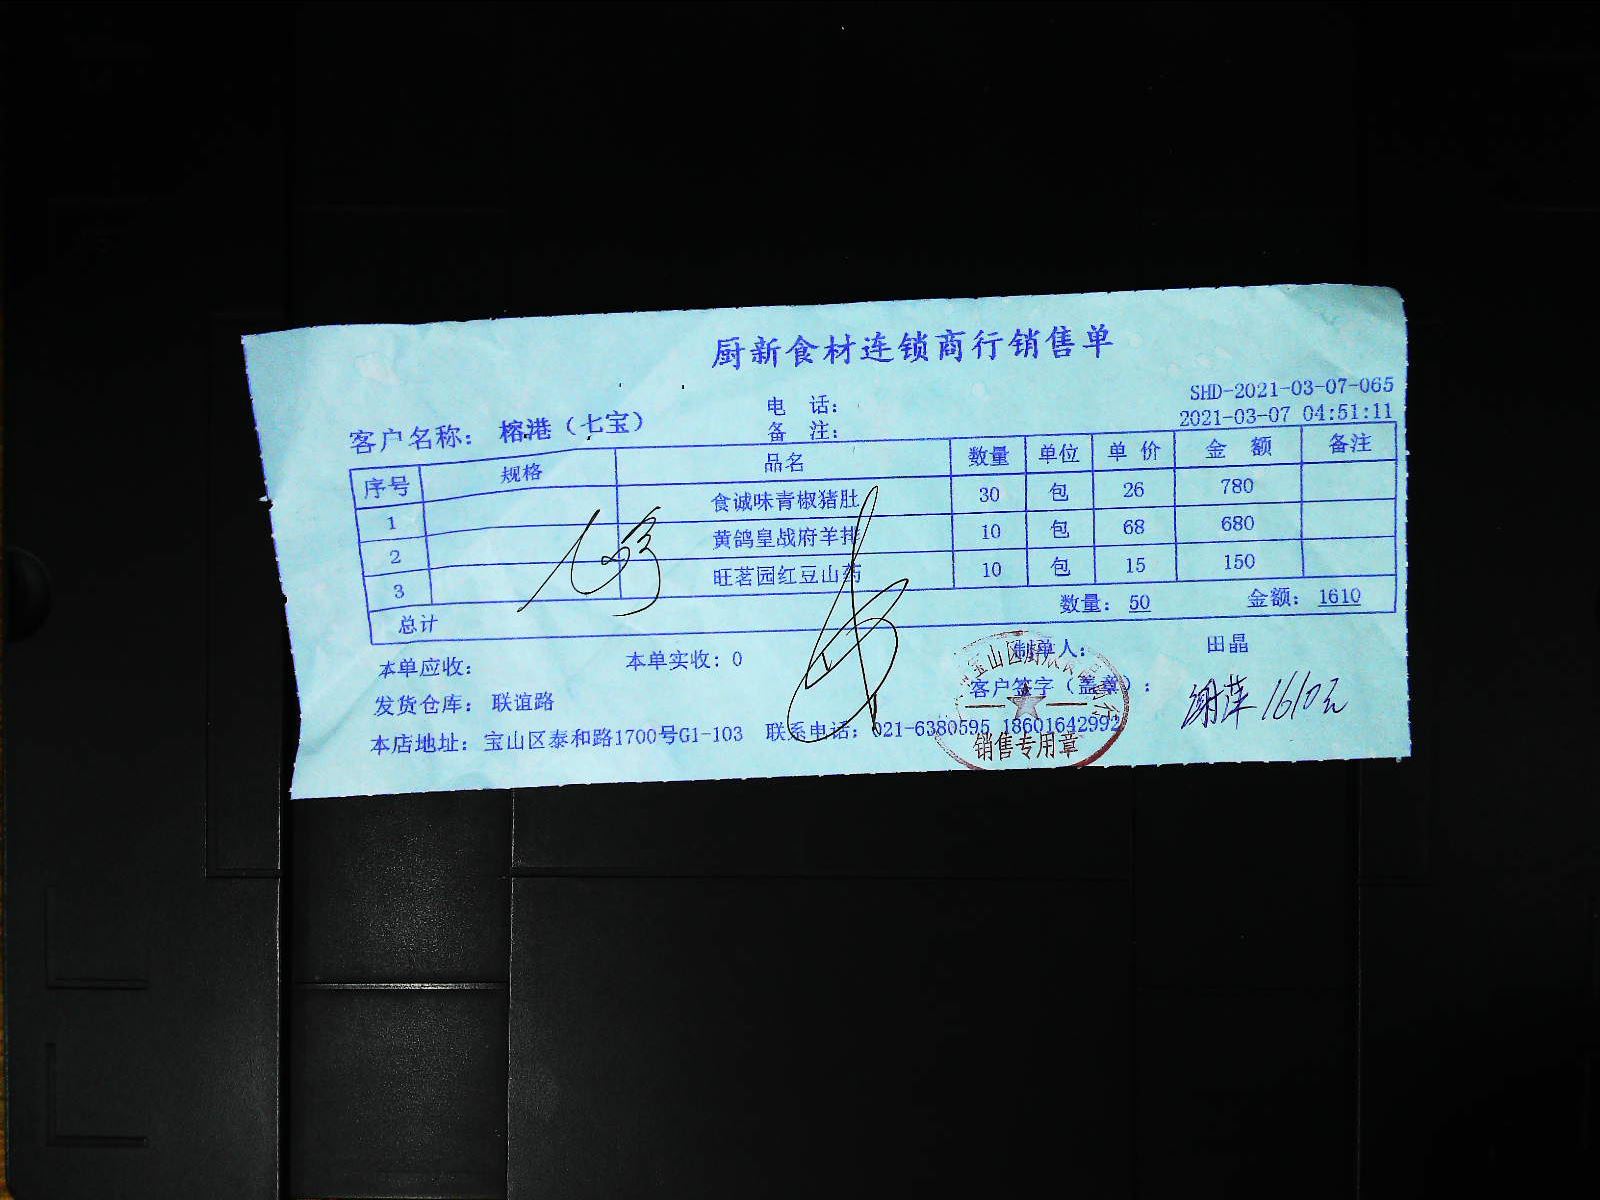 厨新食材连锁商行销售单
SHD-2021-03-07-065
电 话：
2021-03-07 04:51:11
客户名称： 榕港（七宝） 备 注：
序号 规格 品名 数量 单位 单 价 金 额 备注
1 食诚味青椒猪肚 30 包 26 780
2 黄鸽皇战府羊排 10 包 68 680
3 旺茗园红豆山药 10 包 15 150
总计 数量： 50 金额： 1610
本单应收： 本单实收：0 制单人： 田晶
发货仓库： 联谊路 客户签字（盖章）： 谢萍 1610元
本店地址： 宝山区泰和路1700号G1-103 联系电话：021-6380595 18601642992
宝山区厨
销售专用章